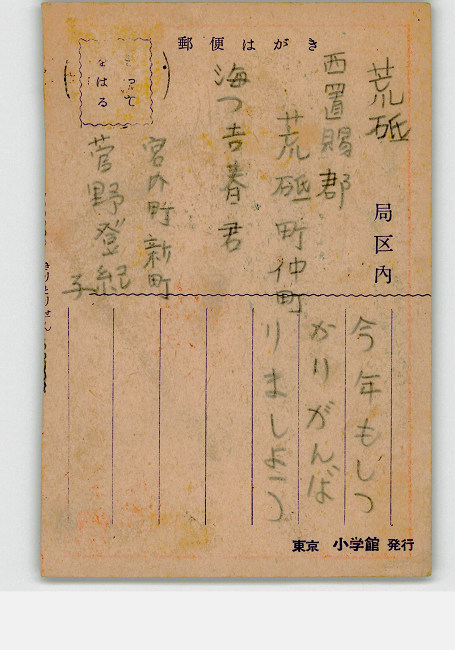 郵便はがき
きって
をはる
荒砥
局区内
西置賜郡
荒砥町仲町
海つ吉春君
宮内町新町
菅野登紀子
今年もしつ
かりがんば
りましよう
きりとりせん
東京 小学館 発行